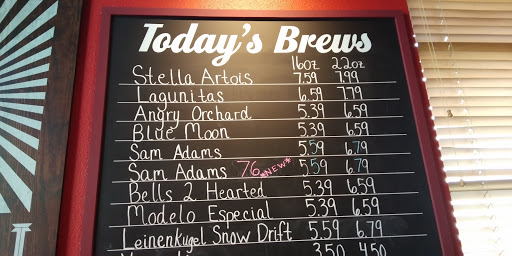 Today's Brews
16oz 22oz
Stella Artois 7.59 7.99
Lagunitas 6.59 7.79
Angry Orchard 5.39 6.59
Blue Moon 5.39 6.59
Sam Adams 5.59 6.79
Sam Adams 76 *NEW* 5.59 6.79
Bells 2 Hearted 5.39 6.59
Modelo Especial 5.39 6.59
Leinenkugel Snow Drift 5.59 6.79
3.50 4.50